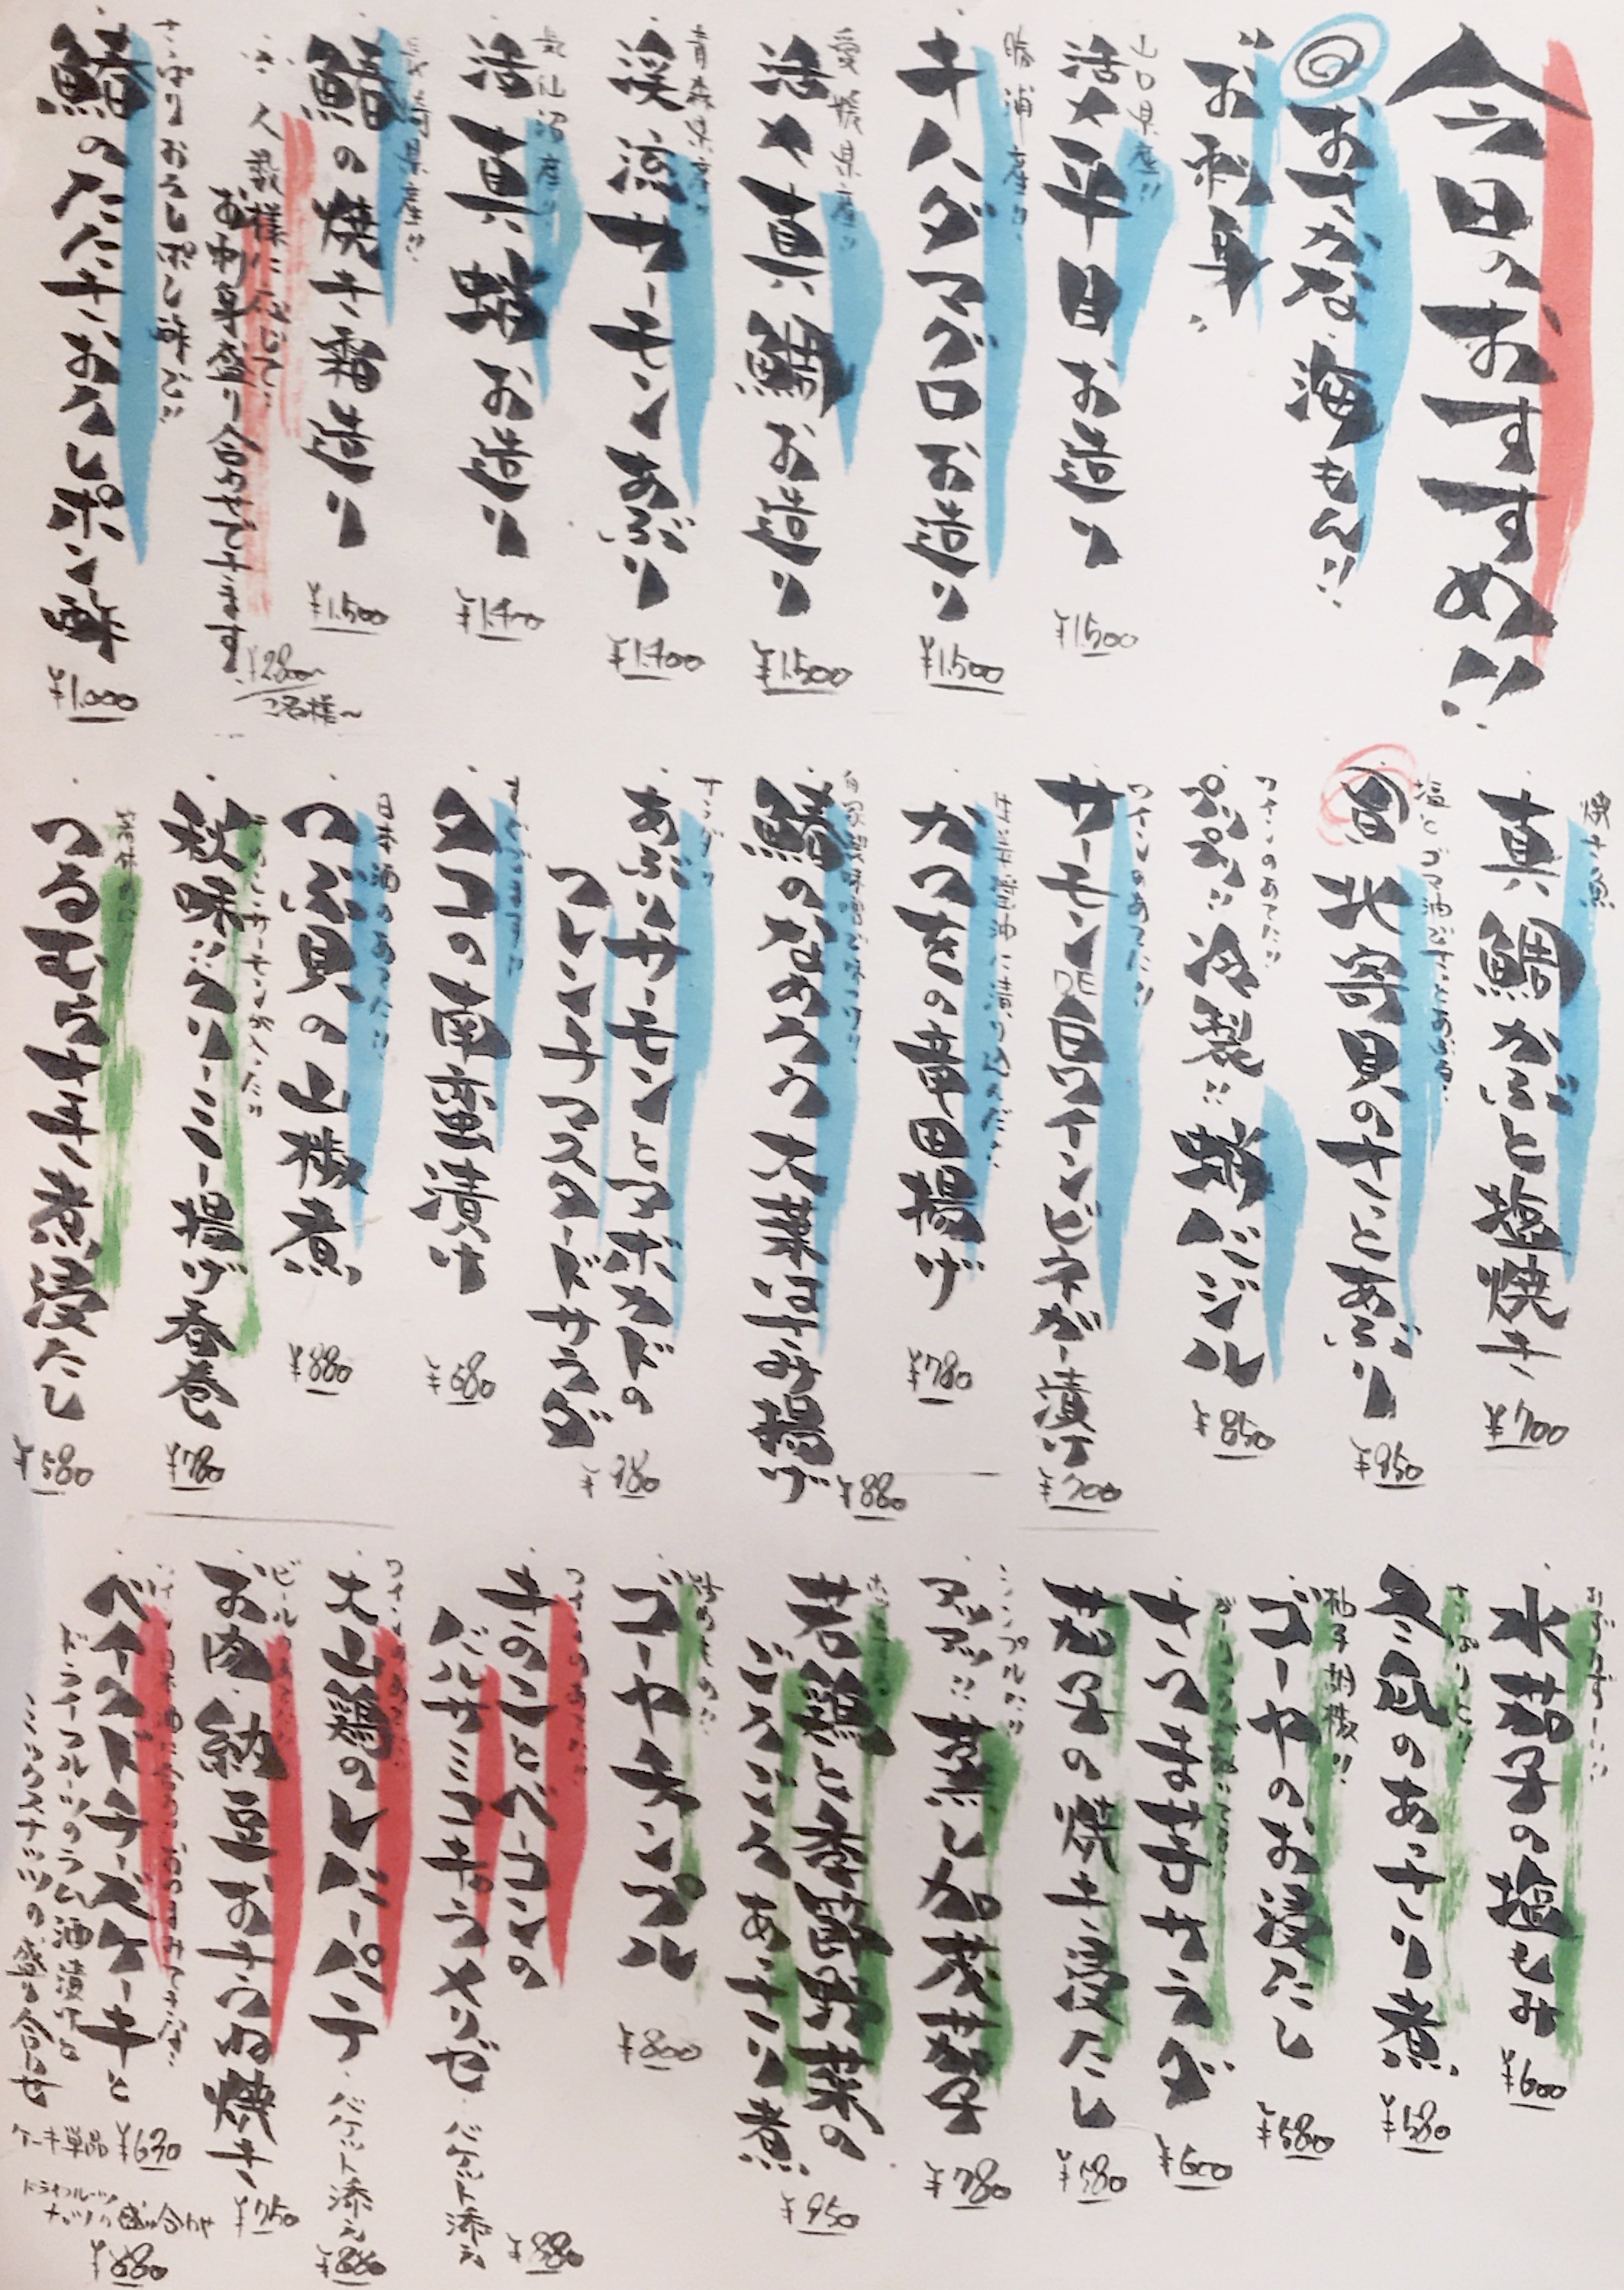 今日のおすすめ!!
おさかな 海もん!!
お刺身
山口県産!!
活〆平目お造り
¥1,500
勝浦産!!
キハダマグロお造り
¥1,500
愛媛県産!!
活〆真鯛お造り
¥1,500
青森県産!!
渓流サーモンあぶり
¥1,400
気仙沼産!!
活真蛸お造り
¥1,400
長崎県産!!
鰆の焼き霜造り
¥1,500
人数様に応じて!!
お刺身盛り合わせできます
¥2,800〜
2名様〜
さっぱりおろしポン酢で!!
鰆のたたきおろしポン酢
¥1,000
焼き魚
真鯛かぶと塩焼き
¥700
塩とゴマ油で
北寄貝のさっとあぶり
¥850
ワインのあてに!!
冷製!!蛸バジル
¥850
ワインのあてに!!
サーモンDE白ワインビネガー漬け
¥700
生姜醤油に漬け込んだ
かつをの竜田揚げ
¥780
自家製味噌で味つけ!!
鰆のなめろう大葉はさみ揚げ
¥880
サラダ!!
あぶりサーモンとアボカドの
フレンチマスタードサラダ
¥980
タコの南蛮漬け
¥680
日本酒のあてに!!
つぶ貝の山椒煮
¥880
きのことサーモンが入った!!
秋味!!クリーミー揚げ春巻
¥780
つるむらさき煮浸たし
¥580
水茄子の塩もみ
¥600
さっぱりと!!
冬瓜のあっさり煮
¥580
柚子胡椒!!
ゴーヤのお浸たし
¥580
さつま芋サラダ
¥600
茄子の焼き浸たし
¥580
シンプルに!!
アッツアツ!!蒸し加茂茄子
¥780
若鶏と季節野菜の
ごろごろあっさり煮
¥950
炒めもの!!
ゴーヤチャンプル
¥800
ワインのあてに!!
きのことベーコンの
バルサミコキャラメリゼ
バケット添え
¥880
ワインのあてに!!
大山鶏のレバーパテ
バケット添え
¥880
ビールのあてに!!
お肉納豆おきつね焼き
¥750
ベイクドチーズケーキと
ドライフルーツのラム酒漬けと
ミックスナッツの盛り合せ
ケーキ単品 ¥630
ドライフルーツ
ナッツ 盛り合わせ
¥680